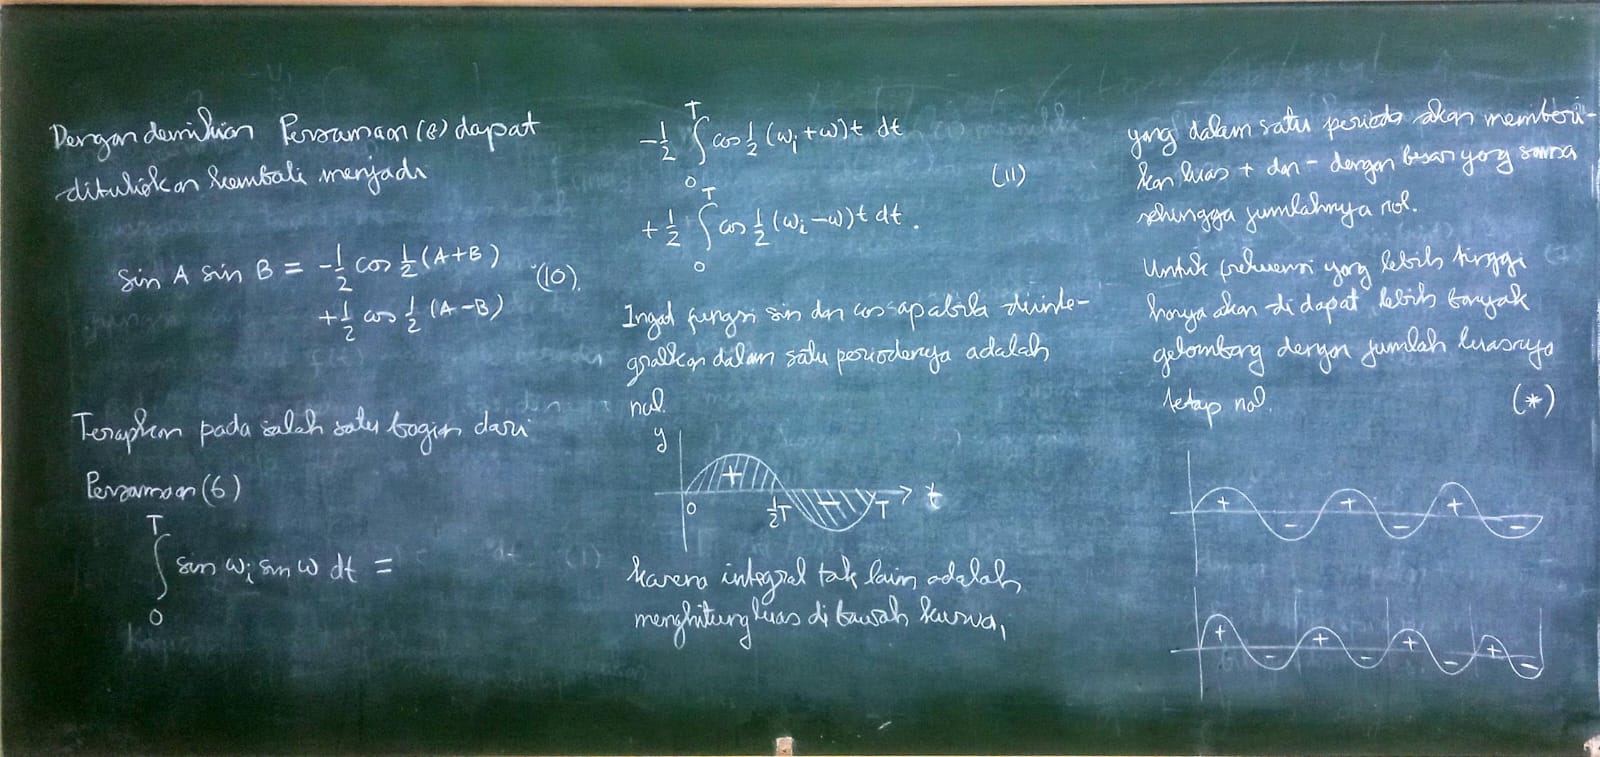 Dengan demikian Persamaan (8) dapat
dituliskan kembali menjadi
sin A sin B = -1/2 cos 1/2 (A+B)
+1/2 cos 1/2 (A-B)
(10).
Terapkan pada salah satu bagian dari
Persamaan (6)
∫₀ᵀ sin ωᵢ sin ω dt =
-1/2 ∫₀ᵀ cos 1/2 (ωᵢ+ω)t dt
(11)
+1/2 ∫₀ᵀ cos 1/2 (ωᵢ-ω)t dt.
Ingat fungsi sin dan cos apabila diinte-
gralkan dalam satu periodenya adalah
nol.
y
+
-
0
1/2T
T
t
karena integral tak lain adalah
menghitung luas di bawah kurva,
yang dalam satu perioda akan memberi-
kan luas + dan - dengan besar yang sama
sehingga jumlahnya nol.
Untuk frekuensi yang lebih tinggi
hanya akan didapat lebih banyak
gelombang dengan jumlah luasnya
tetap nol.
(*)
+ - + - + -
+ - + - + - + -